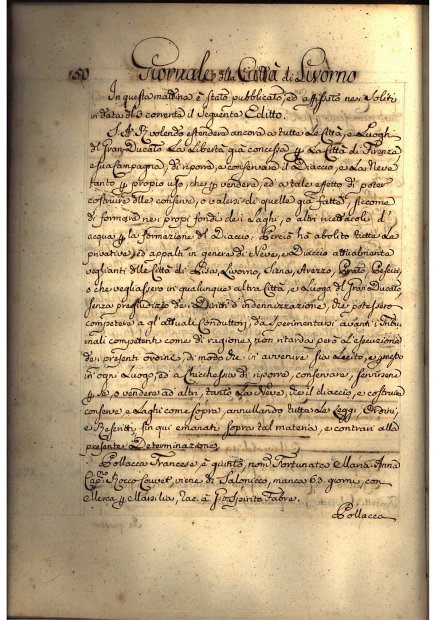 150 Giornale della Città di Livorno
In questa mattina è stato pubblicato, ed affisso nei soliti
in data del 3 corrente il seguente Editto.
S. A. R. volendo estendere ancora a tutte le Città, e Luoghi
del Gran Ducato la Libertà già concessa per la Città di Firenze
e sua Campagna, di riporre, e conservare il Diaccio, e la Neve
tanto per proprio uso, che per vendere, ed a tale effetto di poter
costruire delle conserve, o valersi di quelle già fatte, siccome
di formare nei propri fondi dei Laghi, o altri ricettacoli d'
acqua per la formazione del Diaccio. Perciò ha abolito tutte le
privative, ed appalti in genere di Neve, e Diaccio attualmente
veglianti nelle Città di Pisa, Livorno, Siena, Arezzo, Prato, Pescia,
o che vegliassero in qualunque altra Città, e Luogo del Gran Ducato
senza pregiudizio dei Diritti d'indennizzazione, che potessero
competere a gl'attuali Conduttori, da sperimentarsi avanti i Tribu
nali competenti come di ragione, non ritardata però l'esecuzione
dei presenti ordini, di modo che in avvenire sia lecito, e permesso
in ogni Luogo, ed a chicchessia di riporre, conservare, servirsene
per se, o vendere ad altri, tanto la Neve, che il diaccio, e costruire
conserve, e Laghi come sopra, annullando tutte le Leggi, Ordini,
e Rescritti, fin qui emanati sopra tal materia, e contrari alla
presente Determinazione.
Pollacca Francese è giunta, nom.ta Fortunata Maria Anna
Cap.no Rocco Couvet, viene di Salonicco, manca 63 giorni, con
Merca. per Marsilia, rac. a Gio Spirito Fabre.
Pollacca